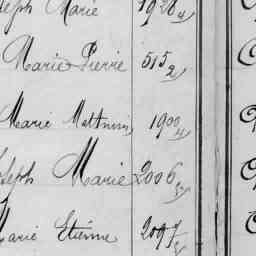 seph Marie 1926 4/
Marie Pierre 515 2/
Marie Mathurin 1900 4/
Joseph Marie 2006 5/
Marie Etienne 2097 5/